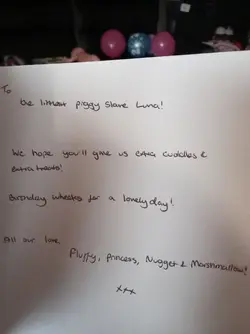 To
the littlest piggy slave Luna!
We hope you'll give us extra cuddles &
extra treats!
Birthday wheeks for a lovely day!
All our love
Fluffy, Princess, Nugget & Marshmallow!
xxx